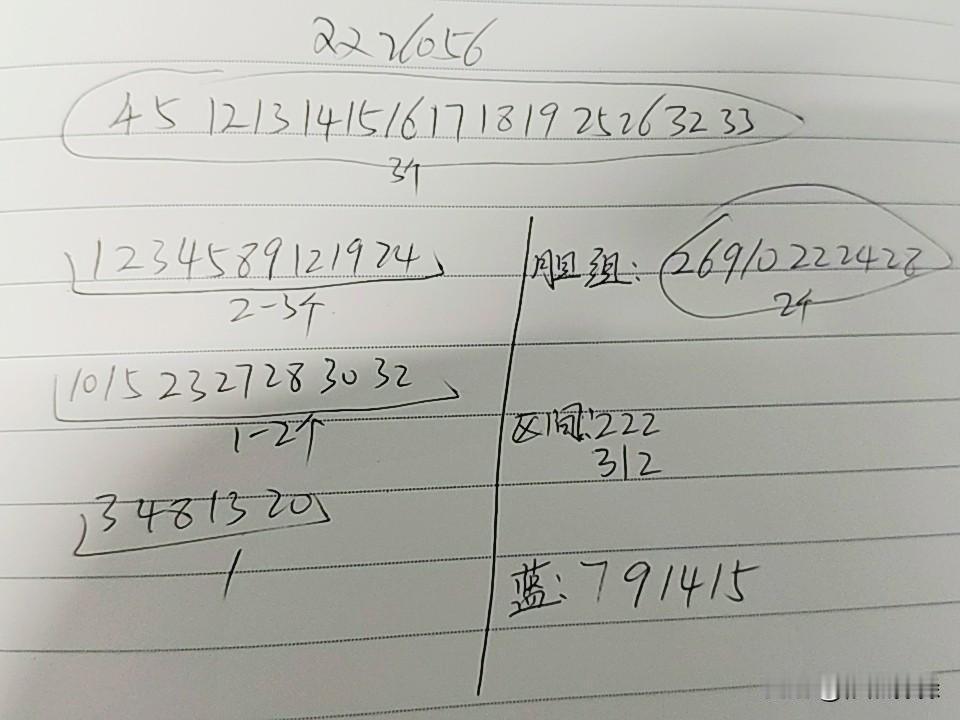 2226056
4 5 12 13 14 15 16 17 18 19 25 26 32 33
3个
1 2 3 4 5 8 9 12 19 24
2-3个
10 15 23 27 28 30 32
1-2个
3 4 8 13 20
1
胆组: 2 6 9 10 22 24 28
2个
区间: 222
312
蓝: 7 9 14 15